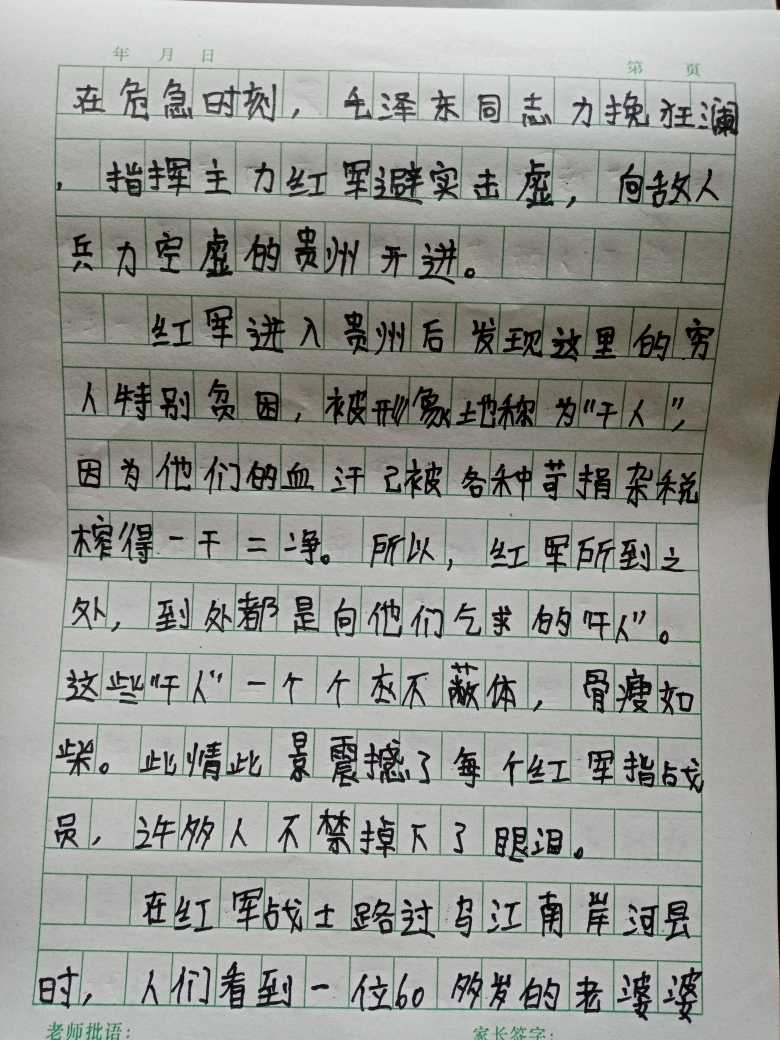 年 月 日
第 页
在危急时刻，毛泽东同志力挽狂澜
，指挥主力红军避实击虚，向敌人
兵力空虚的贵州开进。
红军进入贵州后发现这里的穷
人特别贫困，被形象地称为“干人”，
因为他们的血汗已被各种苛捐杂税
榨得一干二净。所以，红军所到之
处，到处都是向他们乞求的“干人”。
这些“干人”一个个衣不蔽体，骨瘦如
柴。此情此景震撼了每个红军指战
员，许多人不禁掉下了眼泪。
在红军战士路过乌江南岸河县
时，人们看到一位60多岁的老婆婆
老师批语：
家长签字：